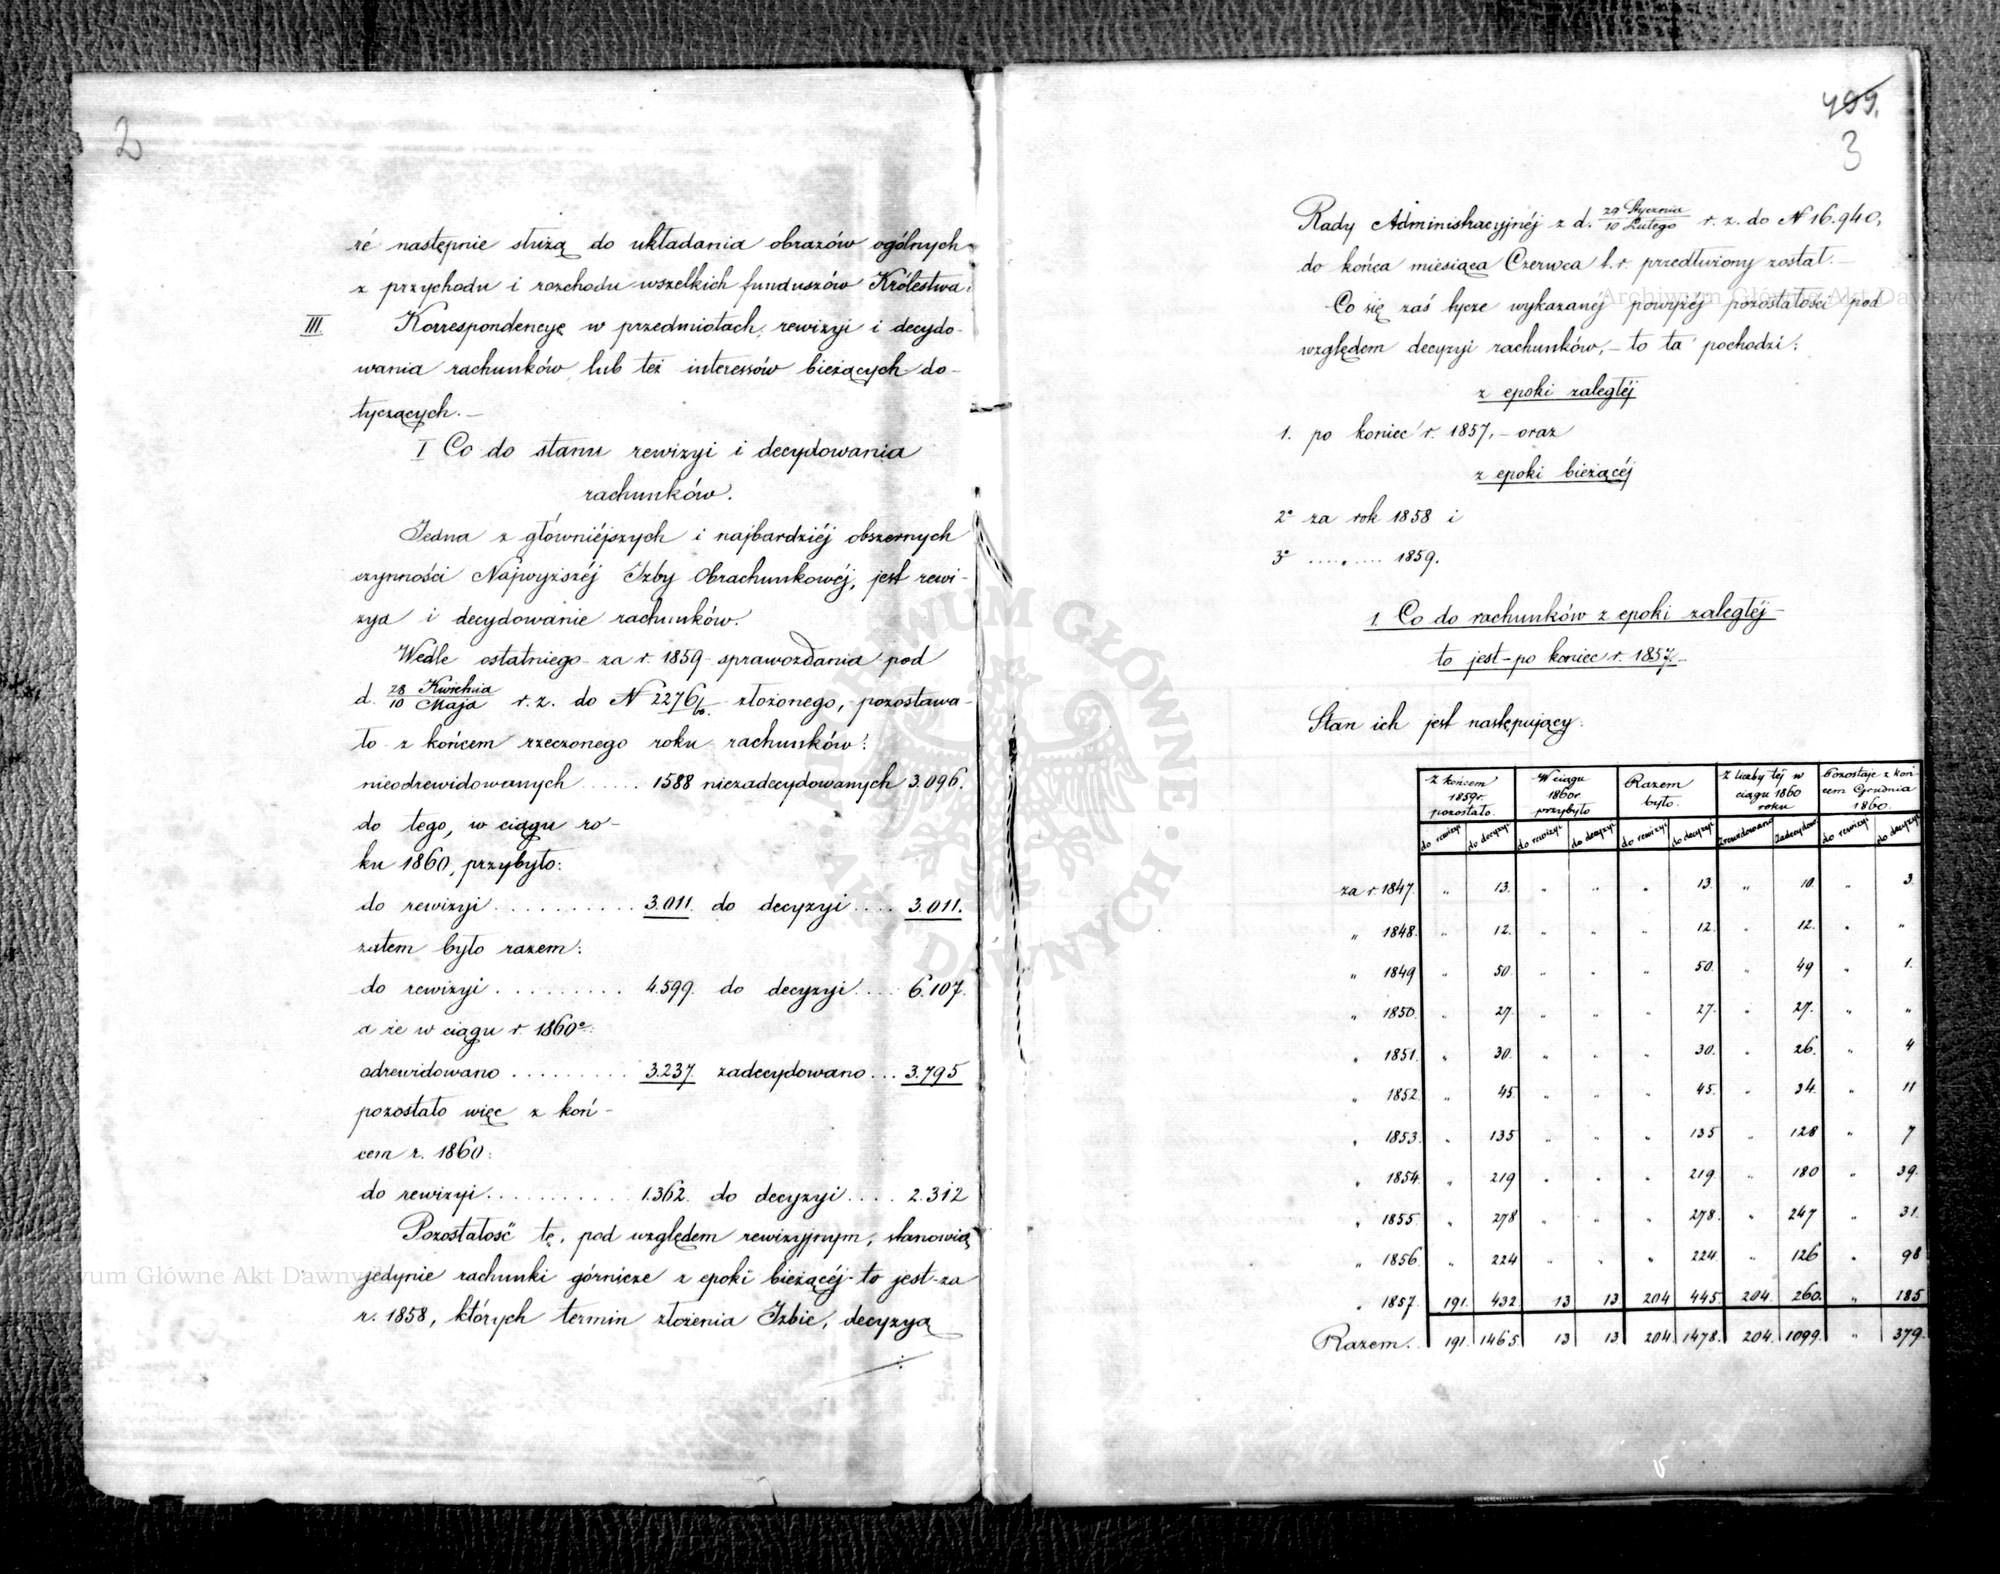 2
ré następnie służą do układania obrazów ogólnych
z przychodu i rozchodu wszelkich funduszów Królestwa.
III. Korrespondencyę w przedmiotach, rewizyi i decydo-
wania rachunków lub też interessów bieżących do-
tyczących.—
I Co do stanu rewizyi i decydowania
rachunków.
Jedna z główniéjszych i najbardziéj obszernych
czynności Najwyższéj Izby Obrachunkowéj, jest rewi-
zya i decydowanie rachunków.
Wedle ostatniego za r. 1859 sprawozdania pod
d. 28 Kwietnia / 10 Maja r. z. do N 2276/ złożonego, pozostawa-
ło z końcem rzeczonego roku rachunków:
nieodrewidowanych ...... 1588 niezadecydowanych 3.096.
do tego, w ciągu ro-
ku 1860, przybyło:
do rewizyi .......... 3.011. do decyzyi .... 3.011.
zatem było razem:
do rewizyi .......... 4.599. do decyzyi .... 6.107.
a że w ciągu r. 1860º:
odrewidowano ......... 3.237. zadecydowano ... 3.795
pozostało więc z koń-
cem r. 1860:
do rewizyi ........... 1.362. do decyzyi .... 2.312
Pozostałość tę, pod względem rewizyjnym, stanowią
jedynie rachunki górnicze z epoki bieżącéj to jest za
r. 1858, których termin złożenia Izbie, decyzyą
499.
3
Rady Administracyjnéj z d. 29 Stycznia / 10 Lutego r. z. do N 16.940,
do końca miesiąca Czerwca t. r. przedłużony został.—
Co się zaś tycze wykazanéj powyżéj pozostałości pod
względem decyzyi rachunków,— to ta pochodzi:
z epoki zaległéj
1. po koniec r. 1857,— oraz
z epoki bieżącéj
2º za rok 1858 i
3º ......... 1859.
1. Co do rachunków z epoki zaległéj—
to jest—po koniec r. 1857.—
Stan ich jest następujący:
Z końcem 1859 r. pozostało. | W ciągu 1860r. przybyło | Razem było. | Z liczby téj w ciągu 1860 roku | Pozostaje z końcem Grudnia 1860.
do rewizyi | do decyzyi | do rewizyi | do decyzyi | do rewizyi | do decyzyi | Zrewidowano | Zadecydow. | do rewizyi | do decyzyi
za r. 1847. " 13. " " " 13. " 10. " 3.
" 1848. " 12. " " " 12. " 12. " "
" 1849 " 50. " " " 50. " 49 " 1.
" 1850. " 27. " " " 27. " 27. " "
" 1851. " 30. " " " 30. " 26. " 4
" 1852. " 45. " " " 45. " 34. " 11
" 1853. " 135 " " " 135 " 128 " 7
" 1854. " 219 " " " 219. " 180 " 39.
" 1855. " 278 " " " 278. " 247 " 31.
" 1856. " 224 " " " 224. " 126 " 98
" 1857. 191. 432 13 13 204 445. 204. 260. " 185
Razem. 191. 1465. 13 13 204 1478. 204. 1099. " 379.
Archiwum Główne Akt Dawnych
ARCHIWUM GŁÓWNE · AKT DAWNYCH ·
wum Główne Akt Dawnych